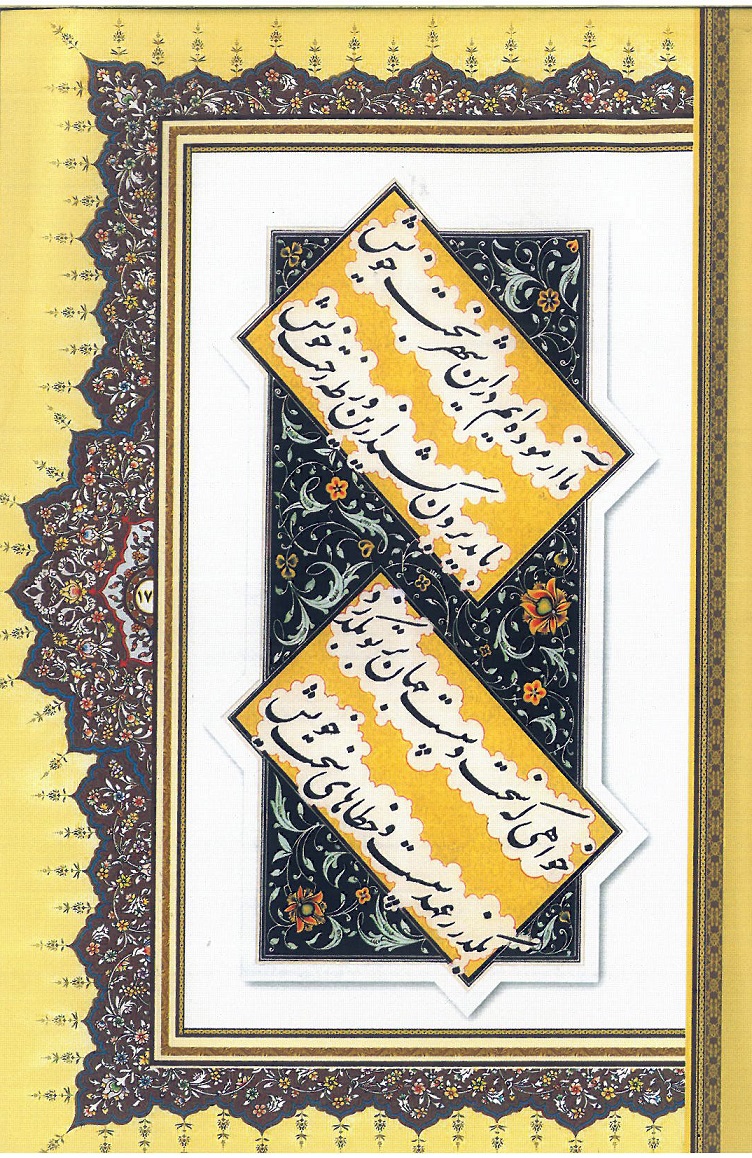 ما آزموده‌ایم در این شهر بخت خویش
باید برون کشید ازین ورطه رخت خویش
خواهی که سخت و سست جهان بر تو بگذرد
بگذر ز عهد سست و خطاهای سخت خویش
۱۷